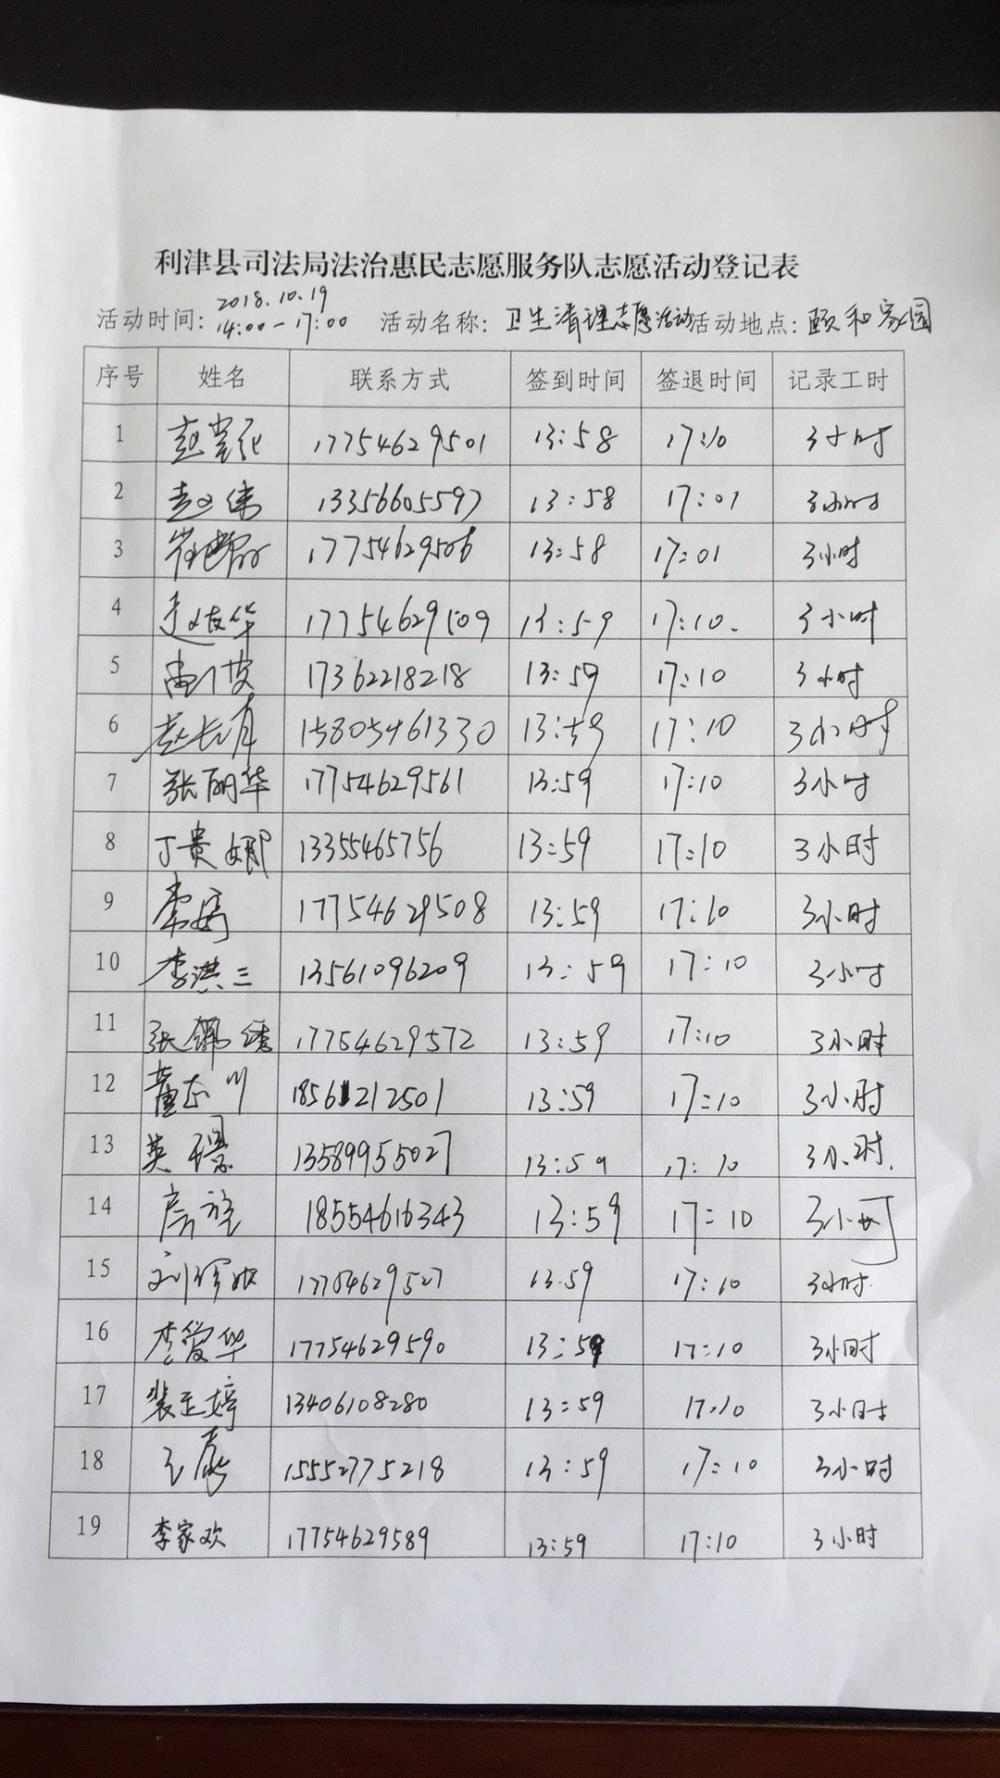 利津县司法局法治惠民志愿服务队志愿活动登记表
活动时间: 2018.10.19 14:00-17:00 活动名称: 卫生清理志愿活动 活动地点: 颐和家园
序号 姓名 联系方式 签到时间 签退时间 记录工时
1 17754629501 13:58 17:10 3小时
2 13356605597 13:58 17:01 3小时
3 17754629506 13:58 17:01 3小时
4 17754629509 13:59 17:10. 3小时
5 17362218218 13:59 17:10 3小时
6 赵长肖 15805461330 13:59 17:10 3小时
7 张丽华 17754629561 13:59 17:10 3小时
8 丁贵娜 13355465756 13:59 17:10 3小时
9 17754629508 13:59 17:10 3小时
10 李洪三 13561096209 13:59 17:10 3小时
11 张 17754629572 13:59 17:10 3小时
12 董志川 18561212501 13:59 17:10 3小时
13 英璟 13589955027 13:59 17:10 3小时.
14 18554616343 13:59 17:10 3小时
15 刘 17754629527 13:59 17:10 3小时
16 李爱华 17754629590 13:59 17:10 3小时
17 裴玉婷 13406108280 13:59 17:10 3小时
18 15552775218 13:59 17:10 3小时
19 李家欢 17754629589 13:59 17:10 3小时